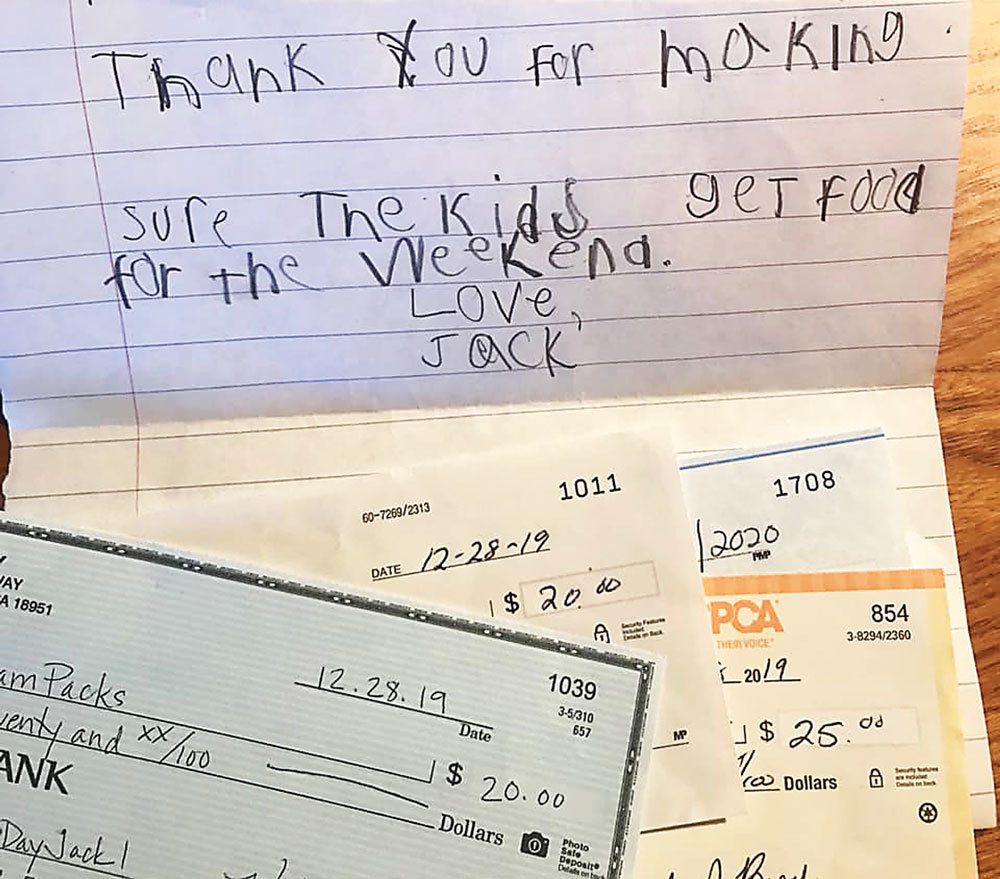 Thank You For making
sure The Kids get Food
for the Weekend.
Love,
Jack
60-7269/2313
1011
DATE 12-28-19
$ 20.00
Security Features
Included.
Details on Back.
MP
1708
2020
PMP
PCA
THEIR VOICE
854
3-8294/2360
2019
$ 25.00
100 Dollars
Security features
are included.
Details on back.
WAY
PA 18951
1039
3-5/310
657
12.28.19
Date
am Packs
wenty and xx/100
$ 20.00
Dollars
Photo
Safe
Deposit®
Details on back
ANK
Day Jack!